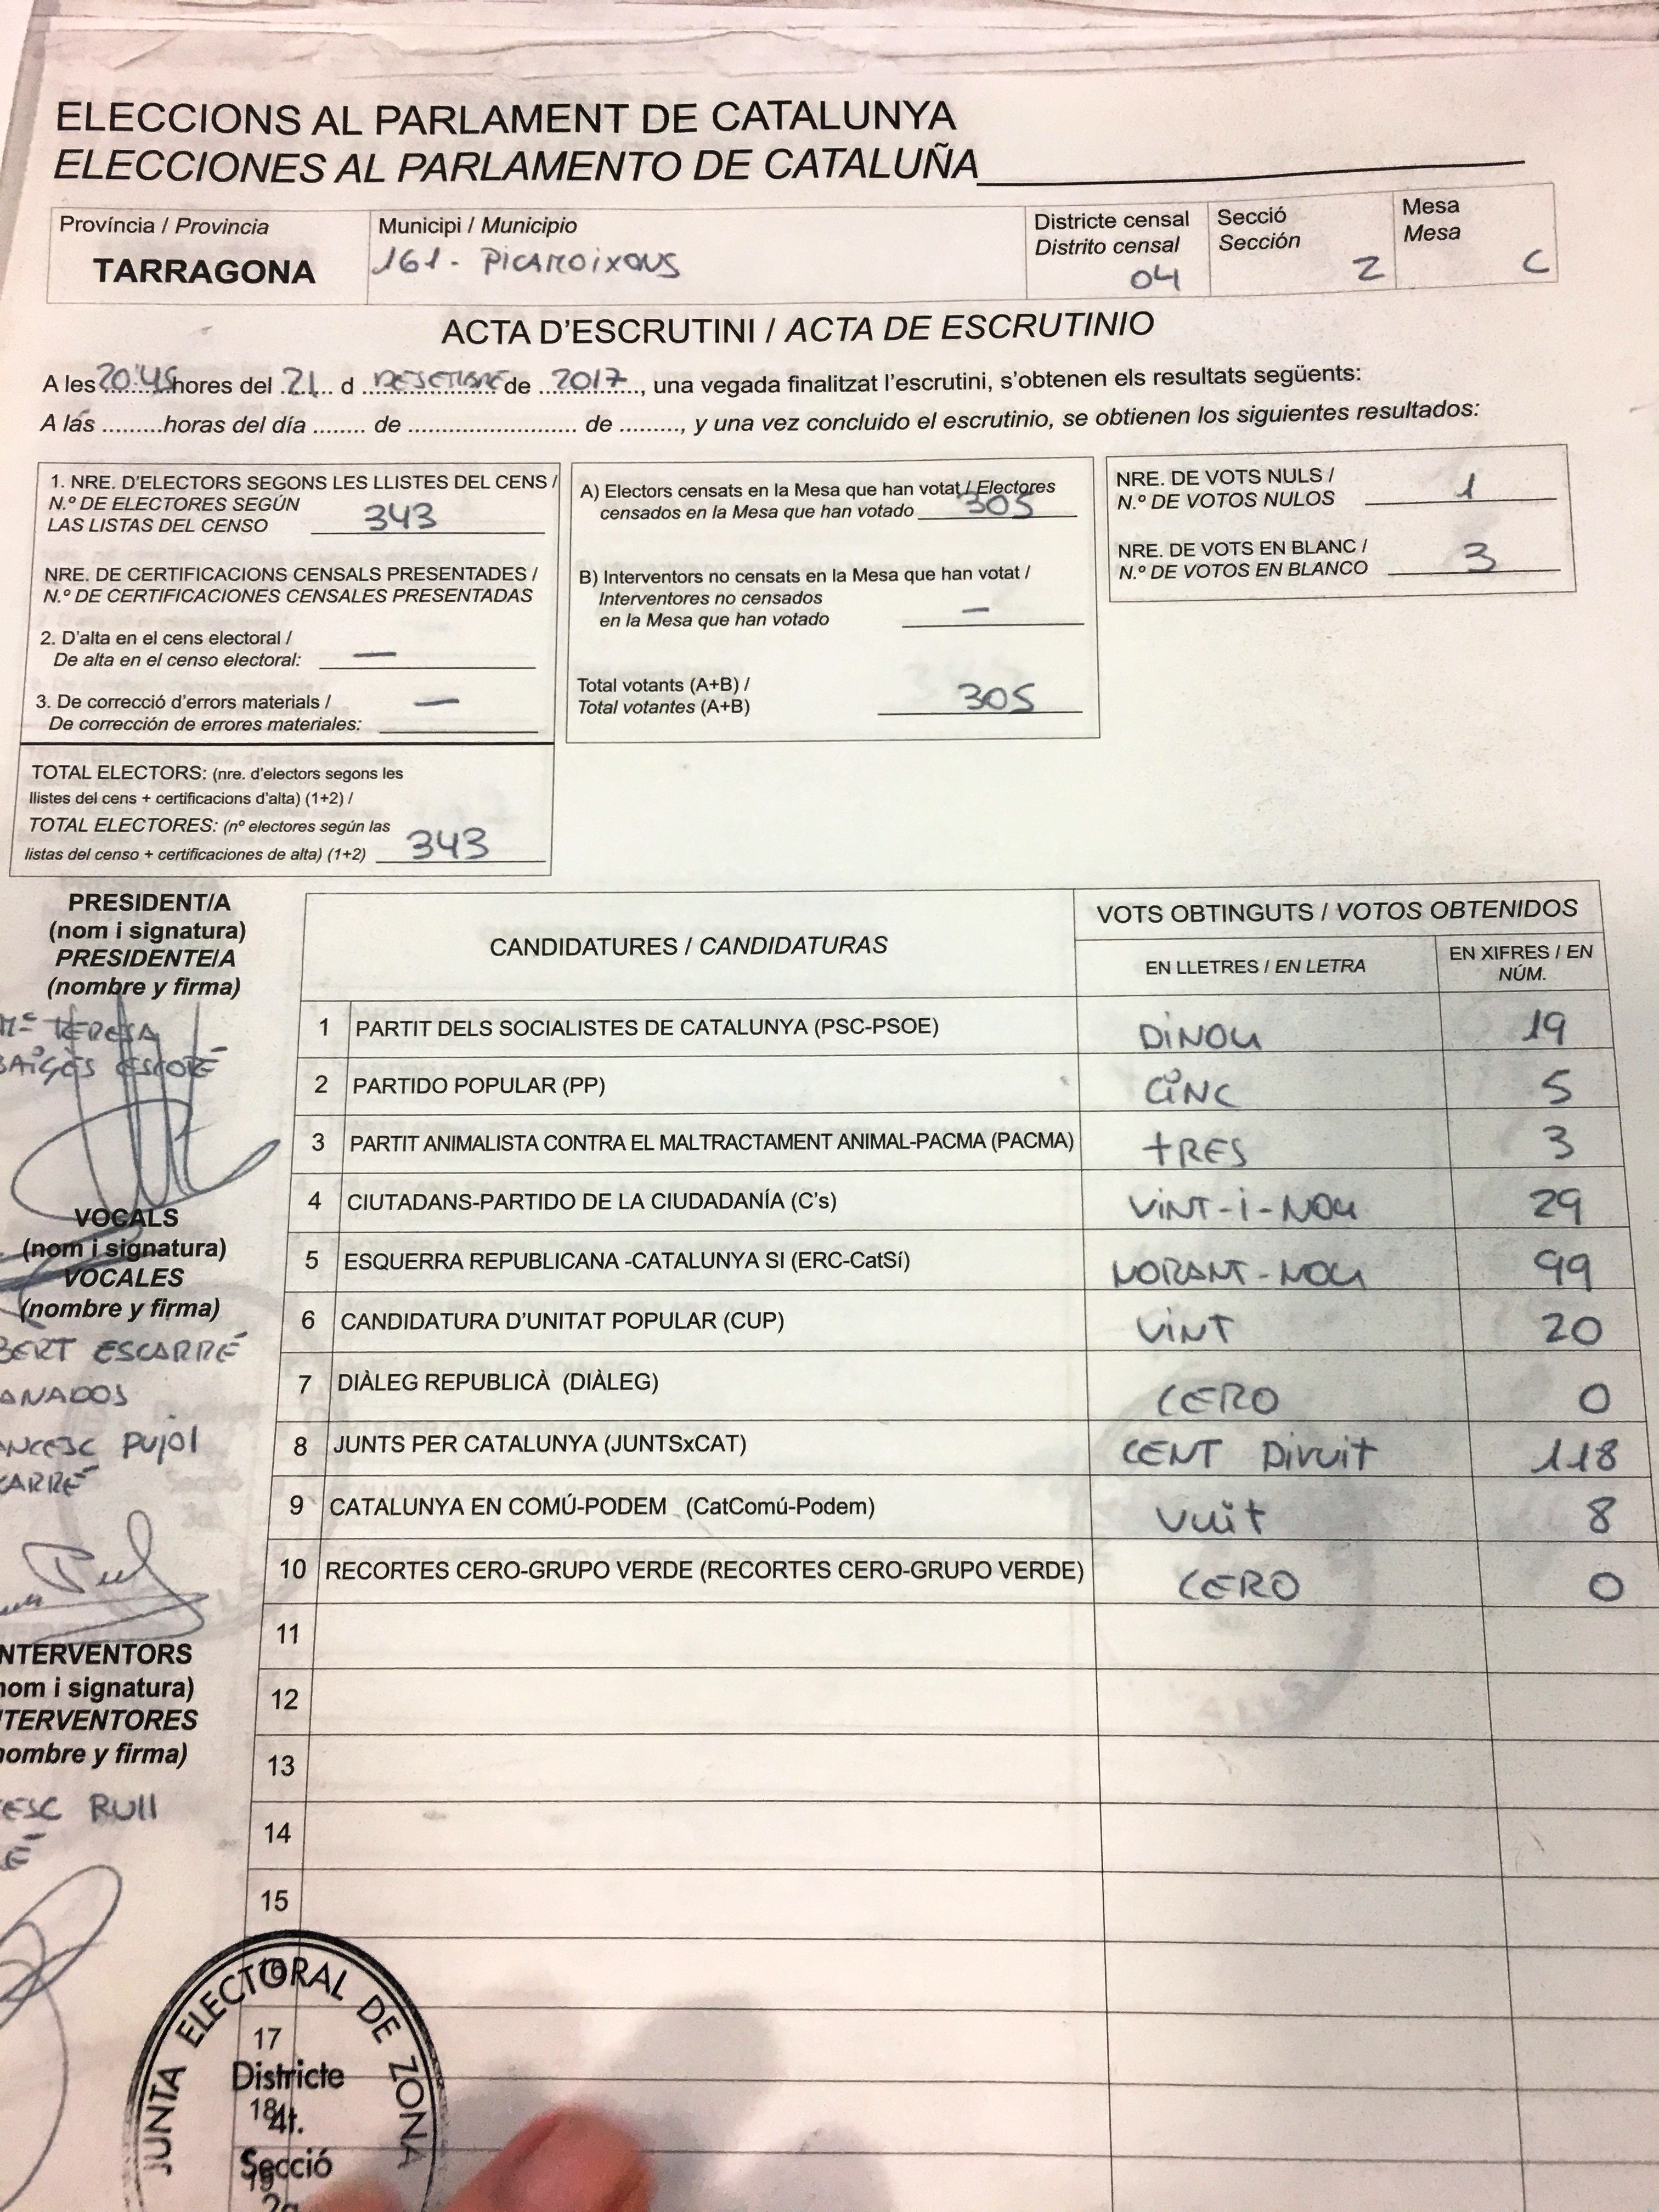 ELECCIONS AL PARLAMENT DE CATALUNYA
ELECCIONES AL PARLAMENTO DE CATALUÑA
Província / Provincia
TARRAGONA
Municipi / Municipio
161 - PICAMOIXONS
Districte censal
Distrito censal
04
Secció
Sección
2
Mesa
Mesa
C
ACTA D'ESCRUTINI / ACTA DE ESCRUTINIO
A les 20:45 hores del 21 d DESEMBRE de 2017, una vegada finalitzat l'escrutini, s'obtenen els resultats següents:
A lás .........horas del día ........ de ......................... de ........., y una vez concluido el escrutinio, se obtienen los siguientes resultados:
1. NRE. D'ELECTORS SEGONS LES LLISTES DEL CENS /
N.º DE ELECTORES SEGÚN
LAS LISTAS DEL CENSO 343
NRE. DE CERTIFICACIONS CENSALS PRESENTADES /
N.º DE CERTIFICACIONES CENSALES PRESENTADAS
2. D'alta en el cens electoral /
De alta en el censo electoral: —
3. De correcció d'errors materials /
De corrección de errores materiales: —
TOTAL ELECTORS: (nre. d'electors segons les
llistes del cens + certificacions d'alta) (1+2) /
TOTAL ELECTORES: (nº electores según las
listas del censo + certificaciones de alta) (1+2) 343
A) Electors censats en la Mesa que han votat / Electores
censados en la Mesa que han votado 305
B) Interventors no censats en la Mesa que han votat /
Interventores no censados
en la Mesa que han votado —
Total votants (A+B) /
Total votantes (A+B) 305
NRE. DE VOTS NULS /
N.º DE VOTOS NULOS 1
NRE. DE VOTS EN BLANC /
N.º DE VOTOS EN BLANCO 3
PRESIDENT/A
(nom i signatura)
PRESIDENTE/A
(nombre y firma)
Mª TERESA
BAIGÈS ESCOTÉ
VOCALS
(nom i signatura)
VOCALES
(nombre y firma)
BERT ESCARRÉ
ANADOS
ANCESC Pujol
CARRÉ
NTERVENTORS
nom i signatura)
TERVENTORES
nombre y firma)
ESC RUll
É
CANDIDATURES / CANDIDATURAS
VOTS OBTINGUTS / VOTOS OBTENIDOS
EN LLETRES / EN LETRA
EN XIFRES / EN
NÚM.
1 PARTIT DELS SOCIALISTES DE CATALUNYA (PSC-PSOE) DINOU 19
2 PARTIDO POPULAR (PP) CINC 5
3 PARTIT ANIMALISTA CONTRA EL MALTRACTAMENT ANIMAL-PACMA (PACMA) TRES 3
4 CIUTADANS-PARTIDO DE LA CIUDADANÍA (C's) VINT-I-NOU 29
5 ESQUERRA REPUBLICANA -CATALUNYA SI (ERC-CatSí) NORANT-NOU 99
6 CANDIDATURA D'UNITAT POPULAR (CUP) VINT 20
7 DIÀLEG REPUBLICÀ (DIÀLEG) CERO 0
8 JUNTS PER CATALUNYA (JUNTSxCAT) CENT DIVUIT 118
9 CATALUNYA EN COMÚ-PODEM (CatComú-Podem) VUIT 8
10 RECORTES CERO-GRUPO VERDE (RECORTES CERO-GRUPO VERDE) CERO 0
11
12
13
14
15
16
17
18
19
JUNTA ELECTORAL DE ZONA
Districte
4t.
Secció
2a